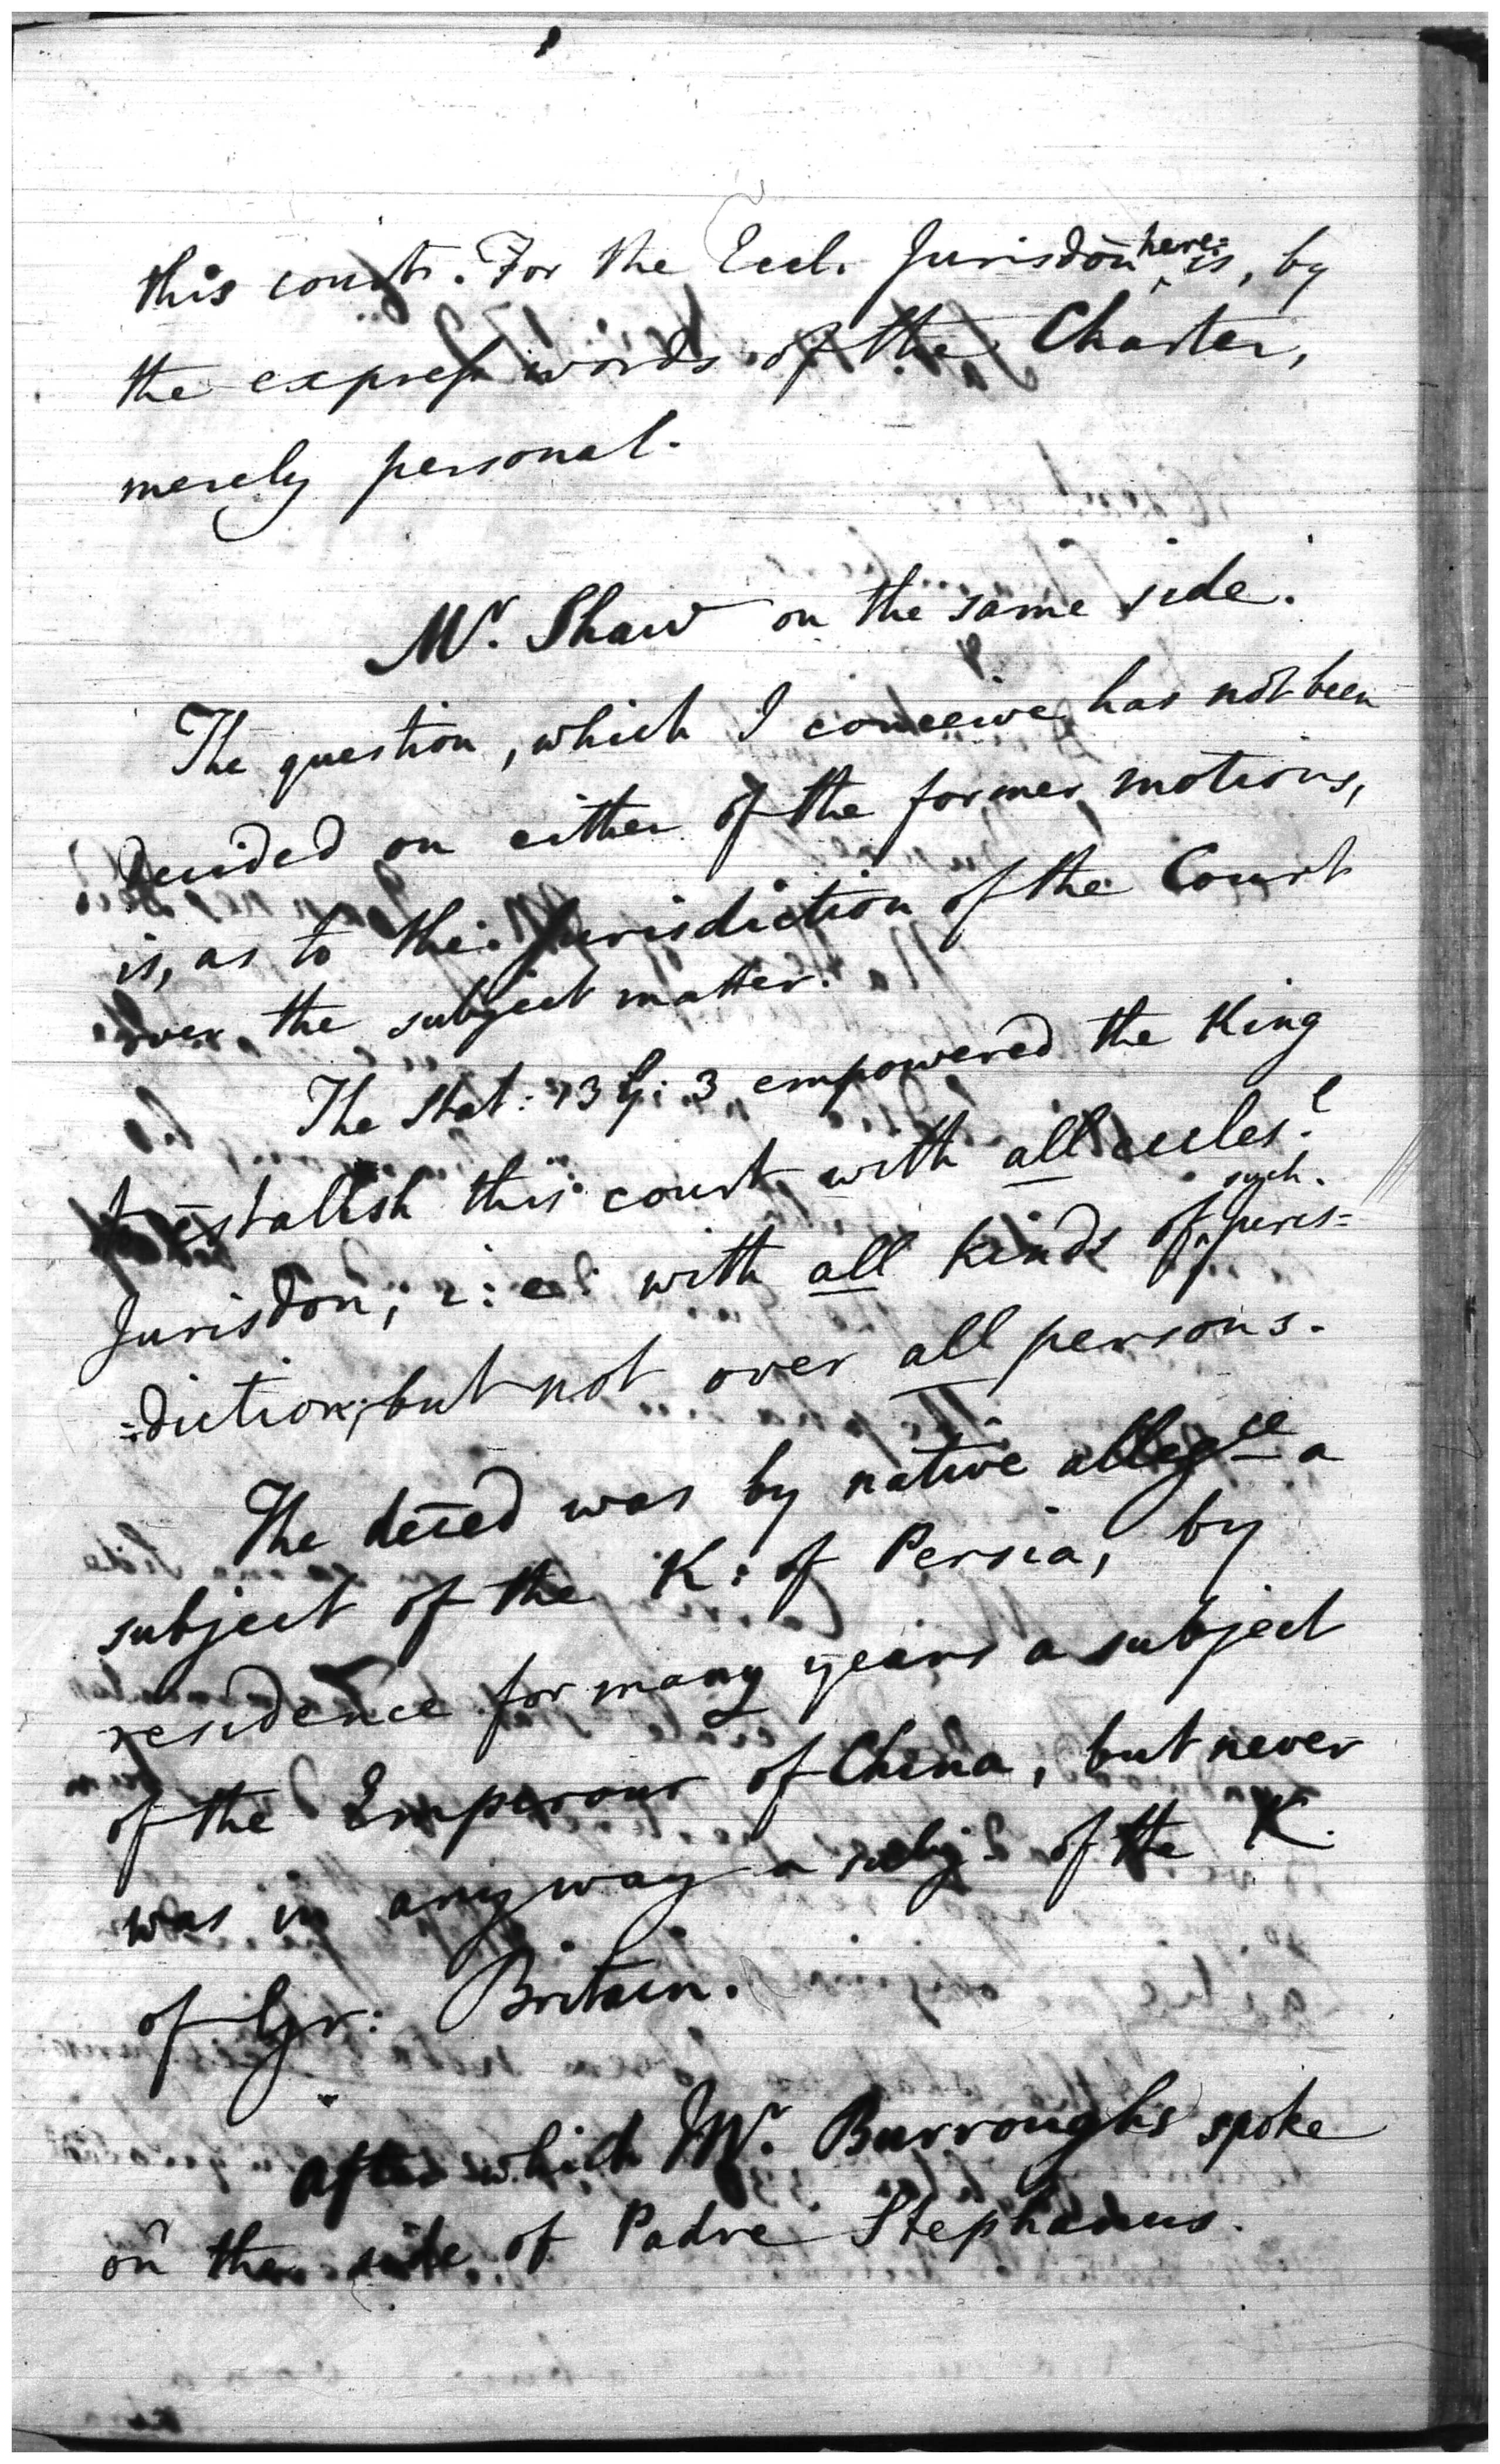 this court. For the Eccl. Jurisdōn here is, by
the express words of the Charter,
merely personal.
Mr. Shaw on the same side.
The question, which I conceive has not been
decided on either of the former motions,
is, as to the Jurisdiction of the Court
over the subject matter.
The Stat: 13 G: 3 empowered the King
to establish this court with all eccles.l
Jurisdon; i: e: with all kinds of such juris=
=diction; but not over all persons.
The deced was by native allegce a
subject of the K: of Persia, by
residence for many years a subject
of the Emperour of China, but never
was in any way a subj: of the K.
of Gr: Britain.
After which Mr. Burroughs spoke
on the side of Padre Stephanus.